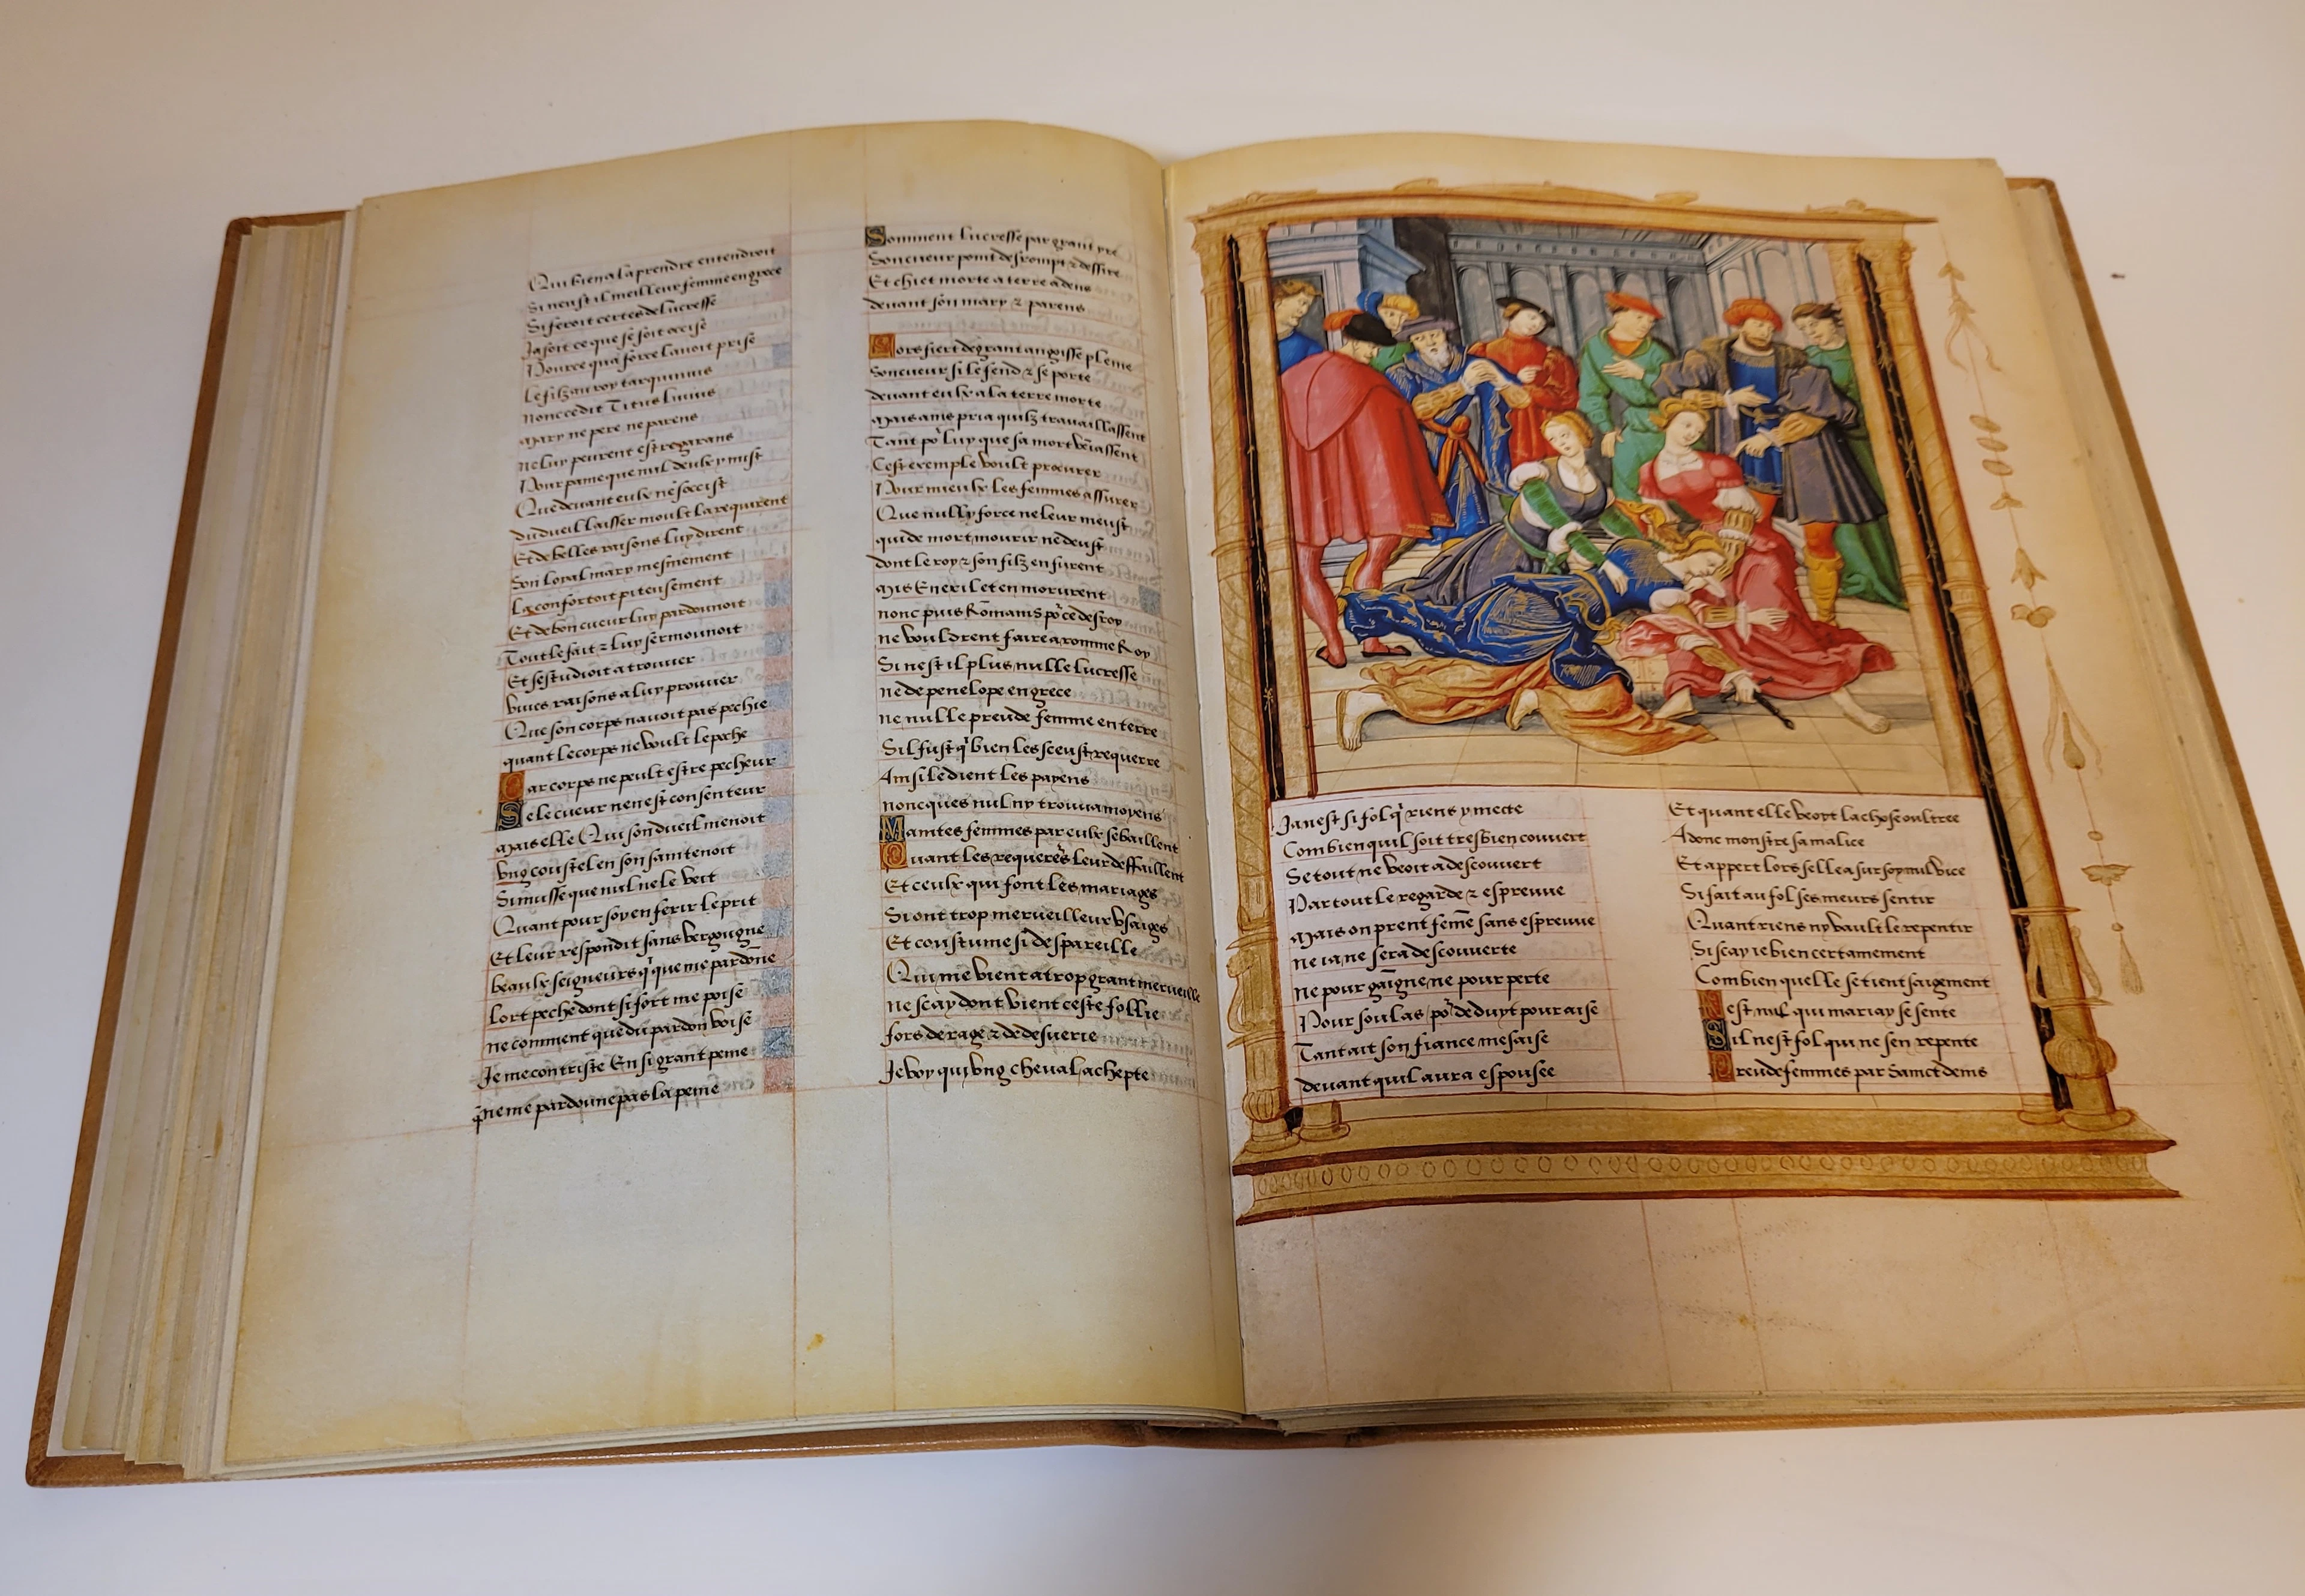 Qui bien a la prendre entendroit
Si neust il meilleur femme en grece
Si seroit certes de lucresse
Ja soit ce que se soit occise
Pource qua force lavoit prise
Le filz au roy tarquinius
Nonc ce dit Titus Livius
Mary ne pere ne parens
ne luy peurent estre garans
Pour pame que nul deulx y mist
Que devant eulx ne soccist
du dueil laisser moult la requirent
Et de belles raisons luy dirent
Son loyal mary mesmement
La confortoit piteusement
Et de bon cueur luy pardonnoit
Tout le fait z luy sermonnoit
Et sestudioit a trouver
vives raisons a luy prouver
Que son corps navoit pas pechie
quant le corps ne voult le peche
Car corps ne peult estre pecheur
Se le cueur nen est consenteur
Mais elle Qui son dueil menoit
ung coustel en son sain tenoit
Si musse que nul ne le veit
Quant pour soy en ferir le prit
Et leur respondit sans vergongne
beaulx seigneurs q̃ que me pardone
Lort peche dont si fort me poise
ne comment que du pardon voise
Je me contriste En si grant peine
q̃ ne me pardonne pas la peine
Comment lucresse par grant yre
Son cueur point desrompt z dessire
Et chiet morte a terre adens
devant son mary z parens
Lors fiert de grant angoisse pleine
Son cueur si le fend z se porte
devant eulx a la terre morte
Mais ains pria quilz travaillassent
Tant po' luy que sa mort vẽiassent
Cest exemple voult procurer
Pour mieulx les femmes assurer
Que nully force ne leur meust
qui de mort mourir ne deust
dont le roy z son filz en furent
Mis En exil et en morurent
nonc puis Rõmains po' ce desroy
ne vouldrent faire a romme Roy
Si nest il plus nulle lucresse
ne de penelope en grece
ne nulle preude femme en terre
Sil fust q̃ bien les sceust requerre
Ainsi le dient les payens
noncques nul ny trouva moyens
Maintes femmes par eulx se baillent
Quant les requerẽs leur deffaillent
Et ceulx qui font les mariages
Si ont trop merveilleux usaiges
Et coustume si despareille
Qui me vient a trop grant merveille
ne scay dont vient ceste follie
fors de rage z de desverie
Je voy qui ung cheval achepte
Ja nest si fol q̃ riens y mecte
Combien quil soit tresbien couvert
Se tout ne veoit a descouvert
Par tout le regarde z espreuve
Mais on prent fem̃e sans espreuve
ne ia ne sera descouverte
ne pour gaigne ne pour perte
Pour soulas po' deduyt pour aise
Tant ait son fiance mesaise
devant quil aura espousee
Et quant elle veoyt la chose oultree
Adonc monstre sa malice
Et appert lors selle a sur soy nul vice
Si fait au fol ses meurs sentir
Quant riens ny vault le repentir
Si scay ie bien certainement
Combien quelle se tient saigement
Nest nul qui mariay se sente
Sil nest fol qui ne sen repente
Preudefemmes par Sainct denis